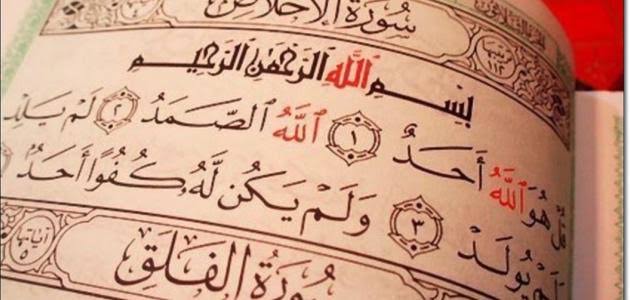 سُورَةُ الإِخْلَاصِ ترتيبها ١١٢
بِسْمِ ٱللَّهِ ٱلرَّحْمَٰنِ ٱلرَّحِيمِ
قُلْ هُوَ ٱللَّهُ أَحَدٌ ١ ٱللَّهُ ٱلصَّمَدُ ٢ لَمْ يَلِدْ
لَمْ يُولَدْ ٣ وَلَمْ يَكُن لَّهُۥ كُفُوًا أَحَدٌ
سُورَةُ الفَلَقِ آياتها ٥